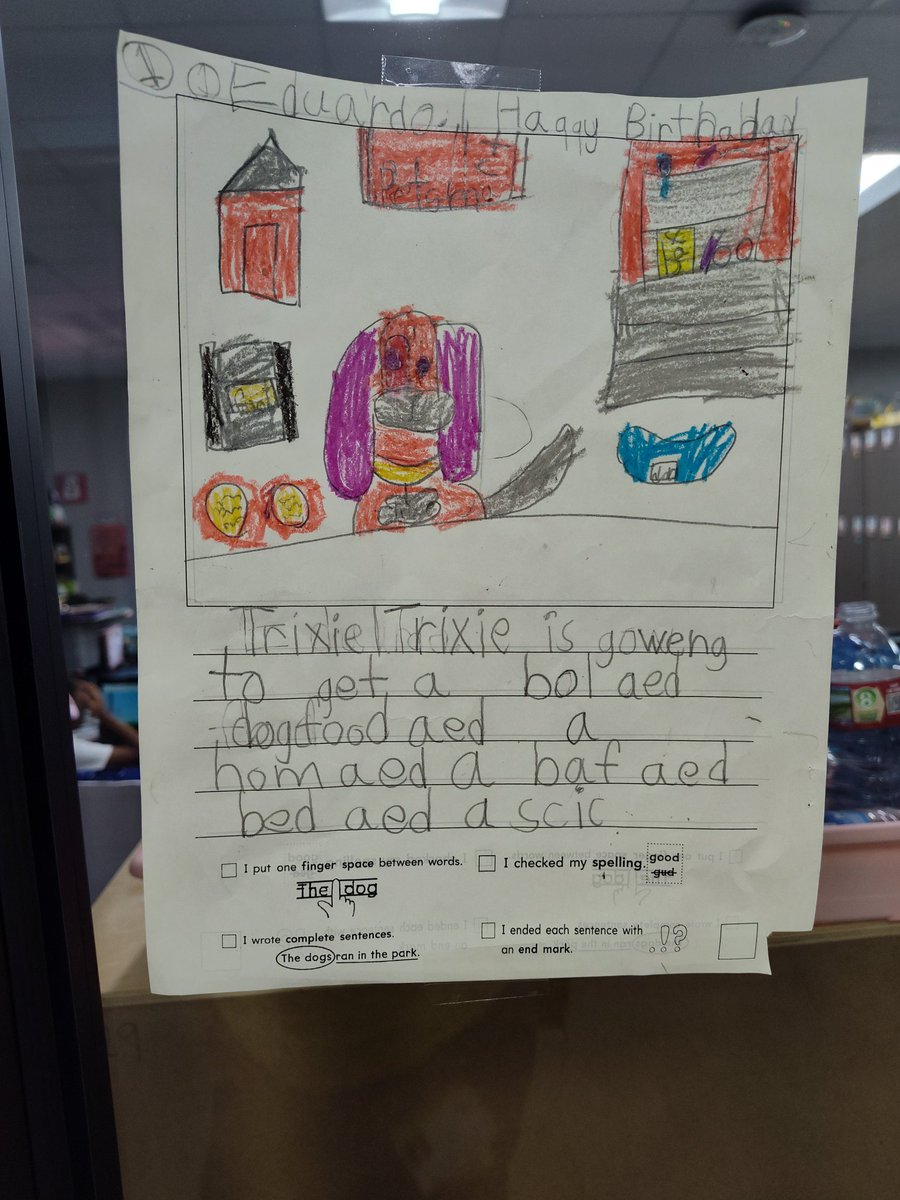 1 1 Eduardo. Haqqy Birthabday
Petsmre
Trixie Trixie is goweng
to get a bol aed
dogfood aed a
hom aed a baf aed
bed aed a scic
I put one finger space between words.
The dog
I checked my spelling.
good
gud
I wrote complete sentences.
The dogs ran in the park.
I ended each sentence with
an end mark.
. ! ?